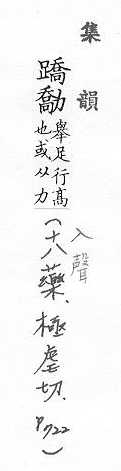 集韻
蹻勪舉足行高
也或从力
入聲
(十八藥、極虐切、P722)